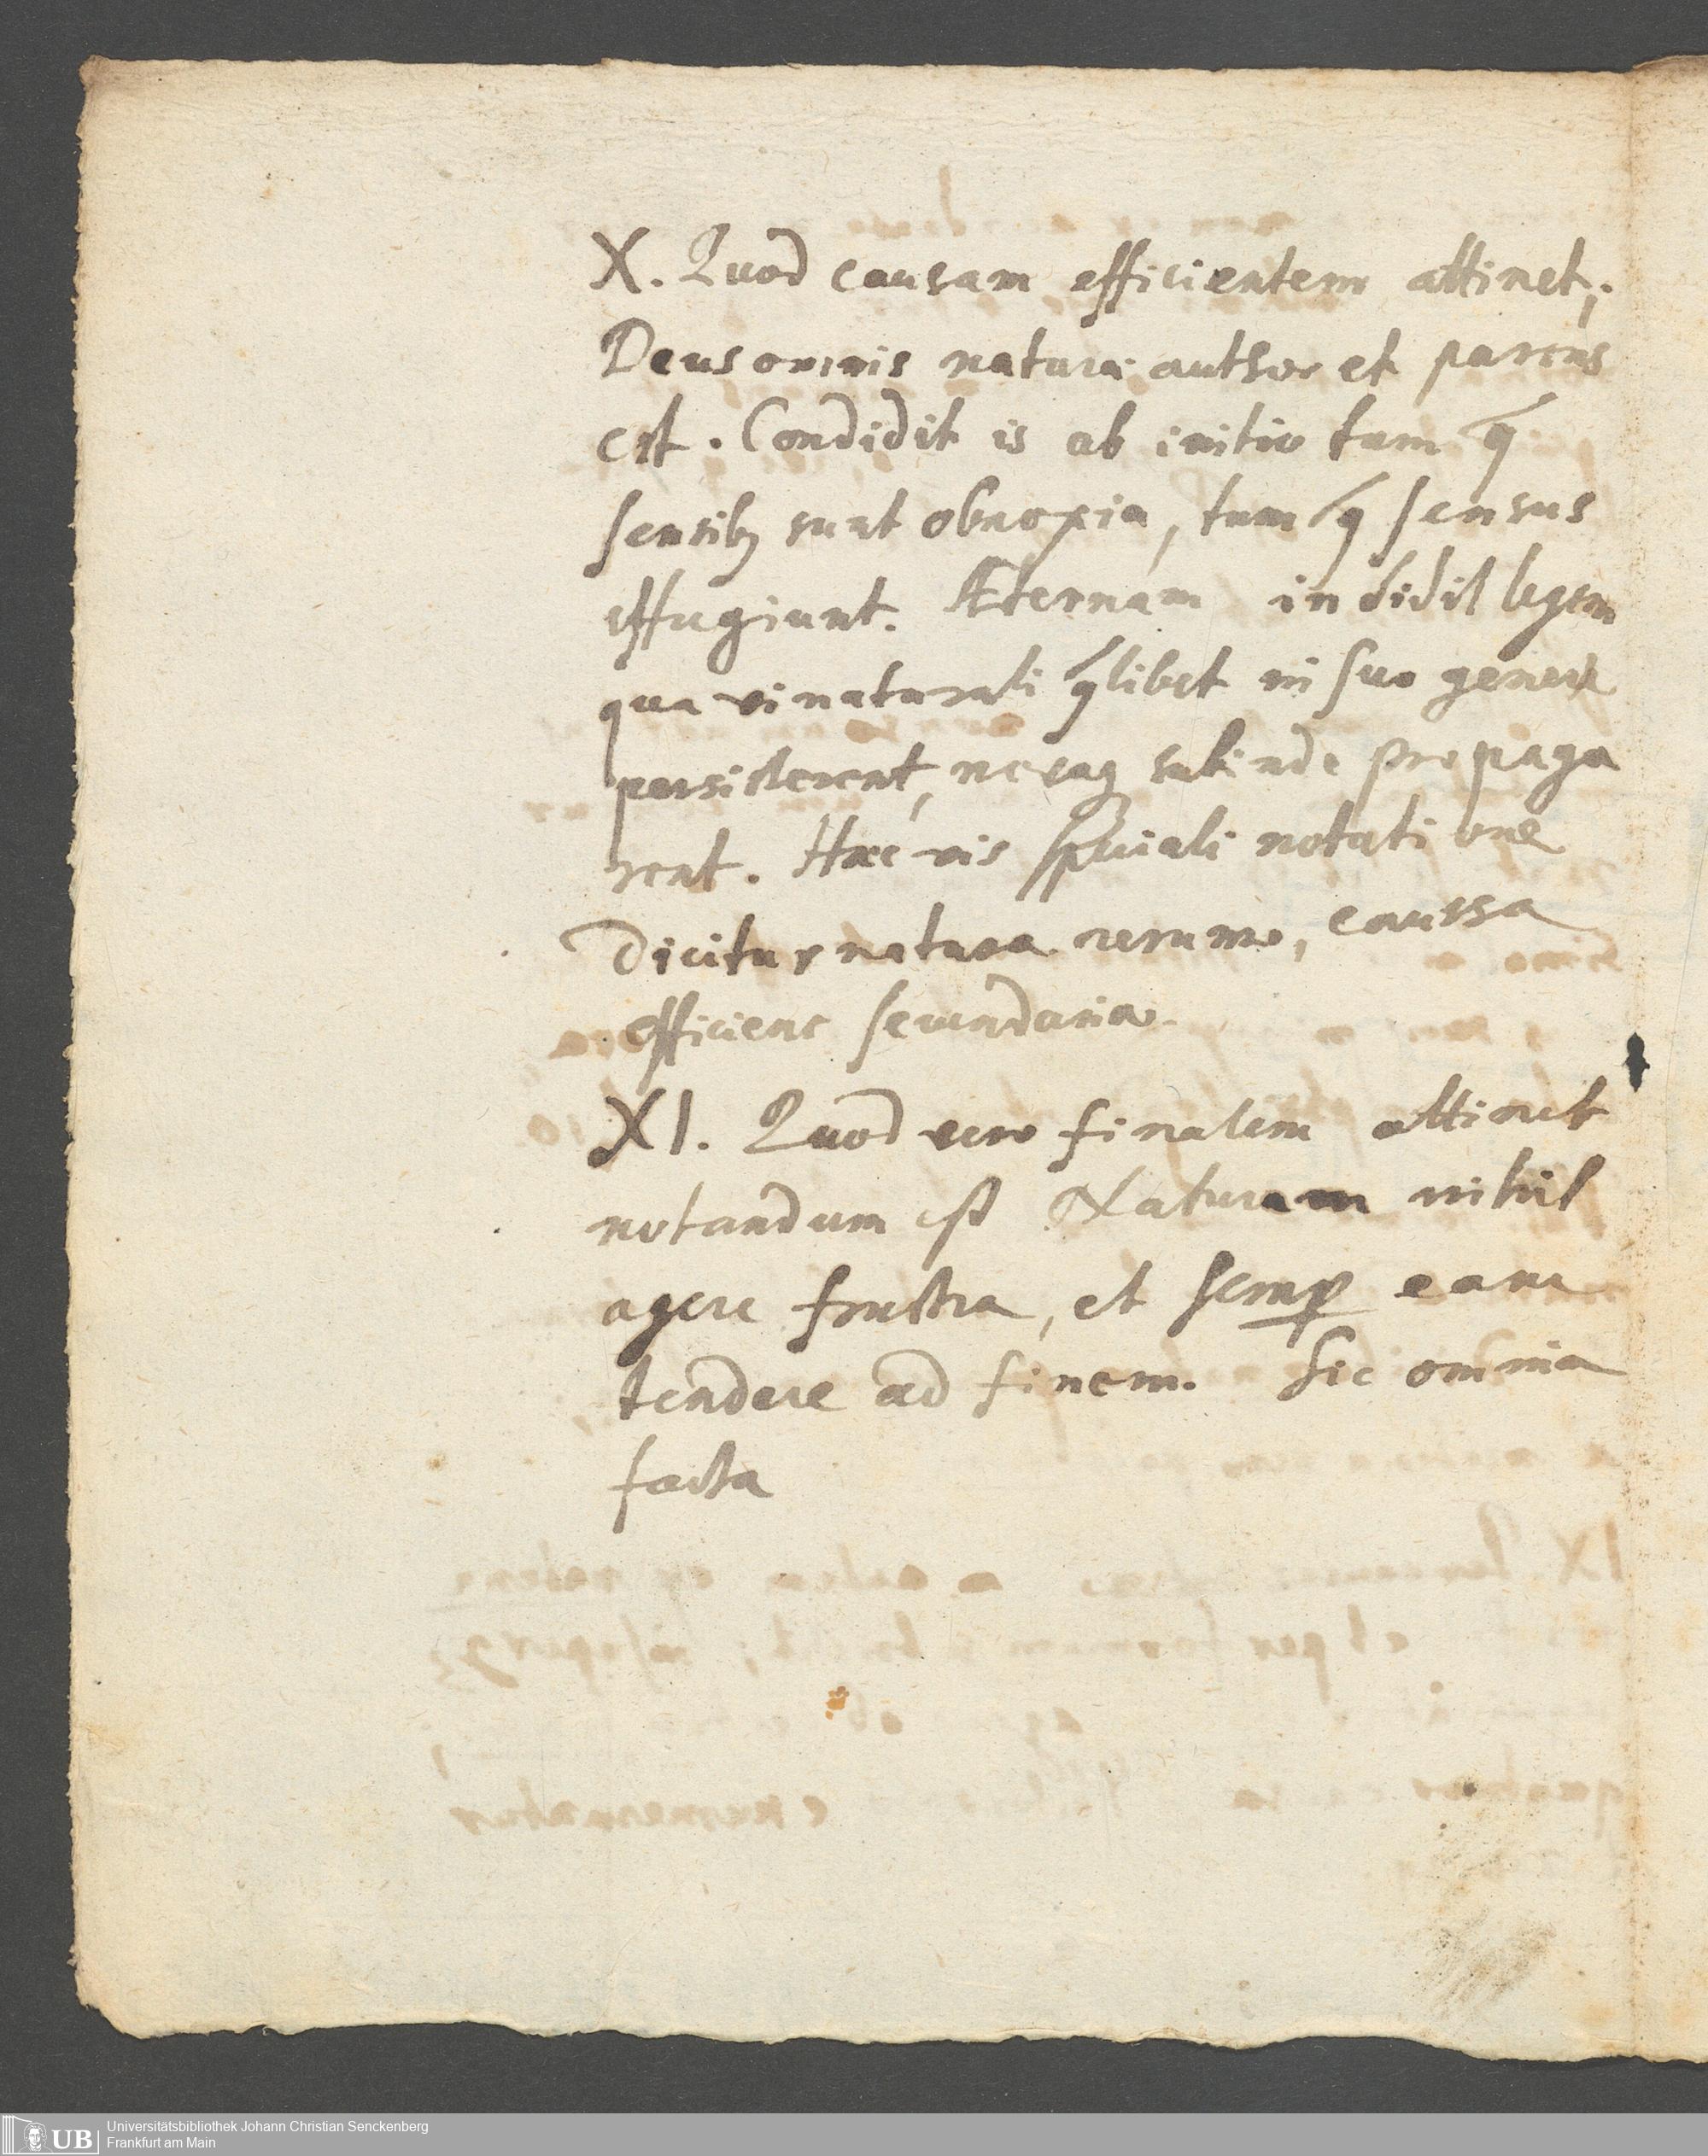 X. Quod causam efficientem attinet;
Deus omnis natura author et parens
est. Condidit is ab initio tum q̃
sensibꝫ sunt obnoxia, tum q̃ sensus
effugiunt. Æternam indidit legem
qua vi naturali q̃libet in suo genere
persisterent, seqꝫ subinde propaga
rent. Hæc vis speciali notatione
dicitur natura rerum, caussa
efficiens secundaria.
XI. Quod vero finalem attinet
notandum est Naturam nihil
agere frustra, et semꝑ eam
tendere ad finem. Sic omnia
facta
Universitätsbibliothek Johann Christian Senckenberg
Frankfurt am Main
UB